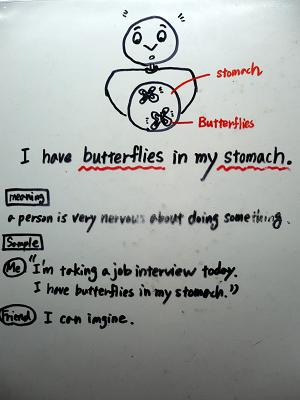 stomach
Butterflies
I have butterflies in my stomach.
meaning
a person is very nervous about doing something.
Sample
Me "I'm taking a job interview today.
I have butterflies in my stomach."
Friend I can imgine.